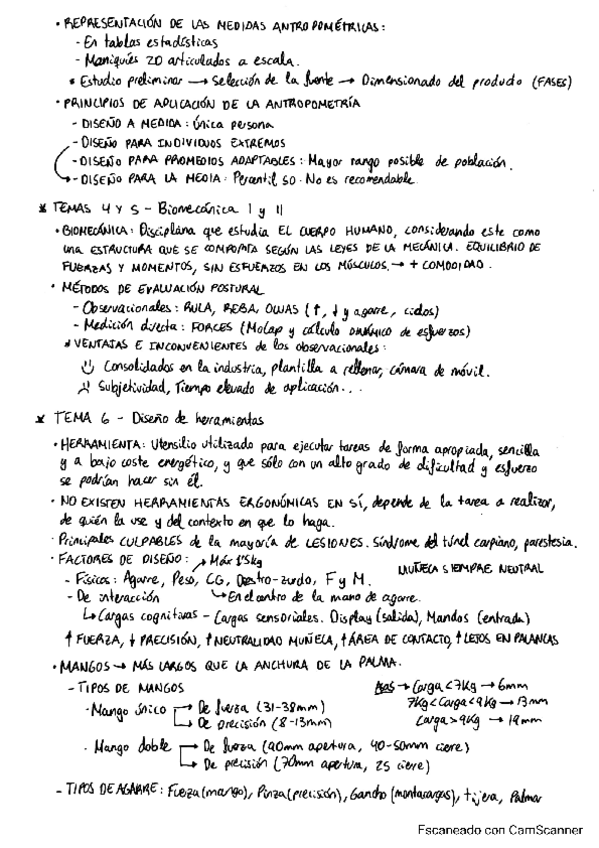 · REPRESENTACIÓN DE LAS MEDIDAS ANTROPOMÉTRICAS:
- En tablas estadísticas
- Maniquíes 2D articulados a escala.
* Estudio preliminar → Selección de la fuente → Dimensionado del producto (FASES)
· PRINCIPIOS DE APLICACIÓN DE LA ANTROPOMETRÍA
- DISEÑO A MEDIDA: única persona
- DISEÑO PARA INDIVIDUOS EXTREMOS
- DISEÑO PARA PROMEDIOS ADAPTABLES: Mayor rango posible de población.
- DISEÑO PARA LA MEDIA: Percentil 50. No es recomendable.
* TEMAS 4 Y 5 - Biomecánica I y II
· BIOMECÁNICA: Disciplina que estudia EL CUERPO HUMANO, considerando este como
una ESTRUCTURA QUE SE COMPORTA SEGÚN LAS LEYES DE LA MECÁNICA. EQUILIBRIO DE
FUERZAS Y MOMENTOS, SIN ESFUERZOS EN LOS MÚSCULOS. → + COMODIDAD.
· MÉTODOS DE EVALUACIÓN POSTURAL
- Observacionales: RULA, REBA, OWAS (↑, ↓ y agarre, ciclos)
- Medición directa: FORCES (MoCap y cálculo dinámico de esfuerzos)
* VENTAJAS E INCONVENIENTES de los observacionales:
Consolidados en la industria, plantilla a rellenar, cámara de móvil.
Subjetividad, Tiempo elevado de aplicación...
* TEMA 6 - Diseño de herramientas
· HERRAMIENTA: Utensilio utilizado para ejecutar tareas de forma apropiada, sencilla
y a bajo coste energético, y que sólo con un alto grado de dificultad y esfuerzo
se podrían hacer sin él.
· NO EXISTEN HERRAMIENTAS ERGONÓMICAS EN SÍ, depende de la tarea a realizar,
de quién la use y del contexto en que lo haga.
· Principales CULPABLES de la mayoría de LESIONES. Síndrome del túnel carpiano, parestesia.
· FACTORES DE DISEÑO: → Máx 1'5kg MUÑECA SIEMPRE NEUTRAL
- Físicos: Agarre, Peso, CG, Diestro-zurdo, F y M.
- De interacción → En el centro de la mano de agarre.
↳ Cargas cognitivas - Cargas sensoriales. Display (salida), Mandos (entrada)
↑ FUERZA, ↓ PRECISIÓN, ↑ NEUTRALIDAD MUÑECA, ↑ ÁREA DE CONTACTO, ↑ LEJOS EN PALANCAS
· MANGOS → MÁS LARGOS QUE LA ANCHURA DE LA PALMA.
- TIPOS DE MANGOS Asas → Carga < 7kg → 6mm
- Mango único → De fuerza (31-38mm) 7kg < Carga < 9kg → 13mm
→ De precisión (8-13mm) Carga > 9kg → 19mm
- Mango doble → De fuerza (90mm apertura, 40-50mm cierre)
→ De precisión (70mm apertura, 25 cierre)
- TIPOS DE AGARRE: Fuerza (mango), Pinza (precisión), Gancho (montacargas), tijera, Palmar
Escaneado con CamScanner